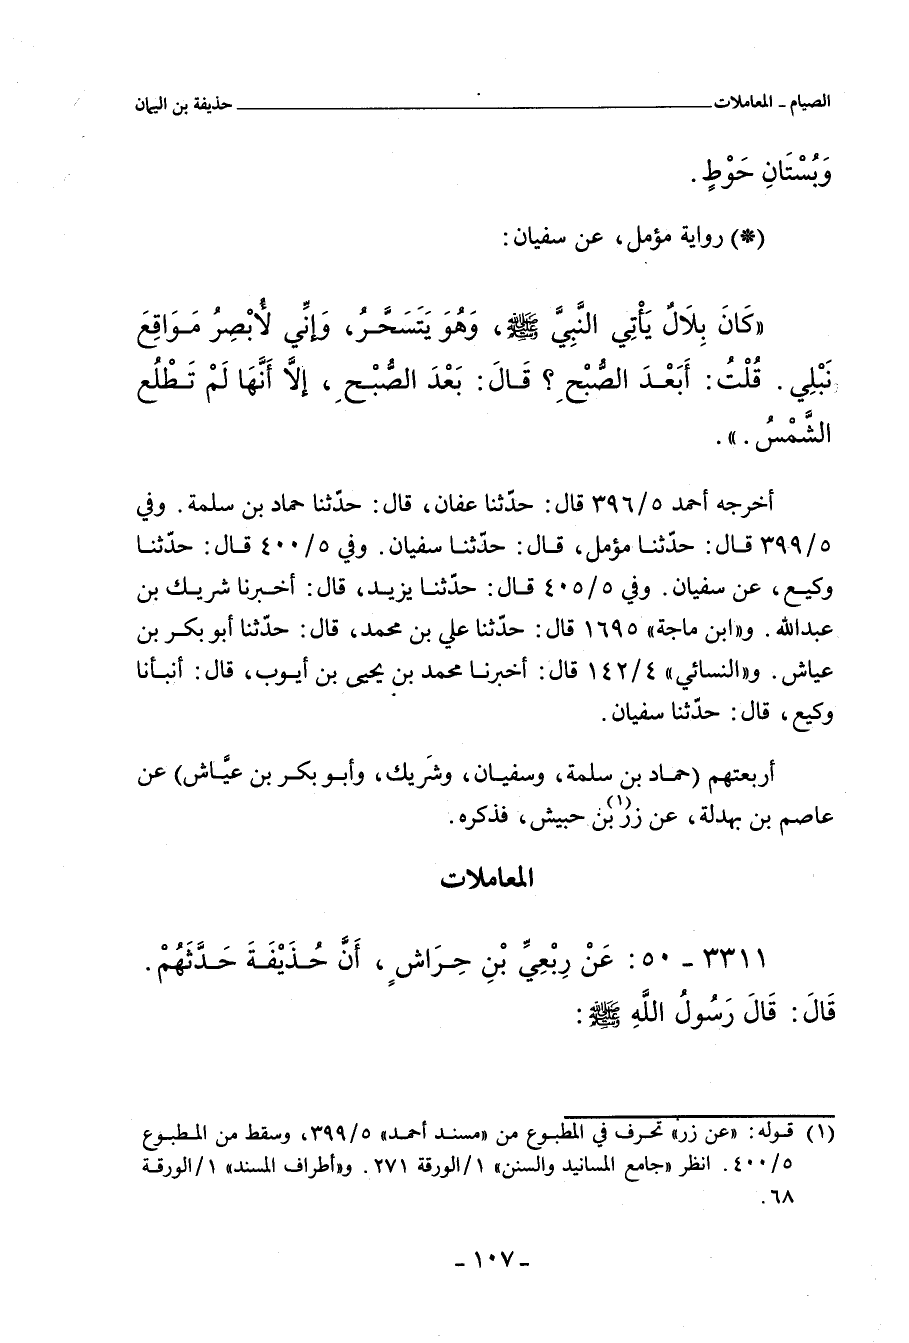 الصيام ـ المعاملات ــــــــ حذيفة بن اليمان
وَبُسْتَانِ حَوْطٍ .
(*) رواية مؤمل، عن سفيان:
«كَانَ بِلَالٌ يَأْتِي النَّبِيَّ ﷺ، وَهُوَ يَتَسَحَّرُ، وَإِنِّي لَأُبْصِرُ مَوَاقِعَ
نَبْلِي. قُلْتُ: أَبَعْدَ الصُّبْحِ؟ قَالَ: بَعْدَ الصُّبْحِ، إلَّا أَنَّهَا لَمْ تَطْلُعِ
الشَّمْسُ.».
أخرجه أحمد ٣٩٦/٥ قال: حدّثنا عفان، قال: حدّثنا حماد بن سلمة. وفي
٣٩٩/٥ قال: حدّثنا مؤمل، قال: حدّثنا سفيان. وفي ٤٠٠/٥ قال: حدّثنا
وكيع، عن سفيان. وفي ٤٠٥/٥ قال: حدّثنا يزيد، قال: أخبرنا شريك بن
عبدالله. و«ابن ماجة» ١٦٩٥ قال: حدّثنا علي بن محمد، قال: حدّثنا أبو بكر بن
عياش. و«النسائي» ١٤٢/٤ قال: أخبرنا محمد بن يحيى بن أيوب، قال: أنبأنا
وكيع، قال: حدّثنا سفيان.
أربعتهم (حماد بن سلمة، وسفيان، وشَريك، وأبو بكر بن عيَّاش) عن
عاصم بن بهدلة، عن زر(١) بن حبيش، فذكره.
المعاملات
٣٣١١ ـ ٥٠: عَنْ رِبْعِيِّ بْنِ حِرَاشٍ، أَنَّ حُذَيْفَةَ حَدَّثَهُمْ.
قَالَ: قَالَ رَسُولُ اللَّهِ ﷺ:
(١) قوله: «عن زر» تحرف في المطبوع من «مسند أحمد» ٣٩٩/٥، وسقط من المطبوع
٤٠٠/٥. انظر «جامع المسانيد والسنن» ١/الورقة ٢٧١. و«أطراف المسند» ١/الورقة
٦٨.
ـ ١٠٧ ـ